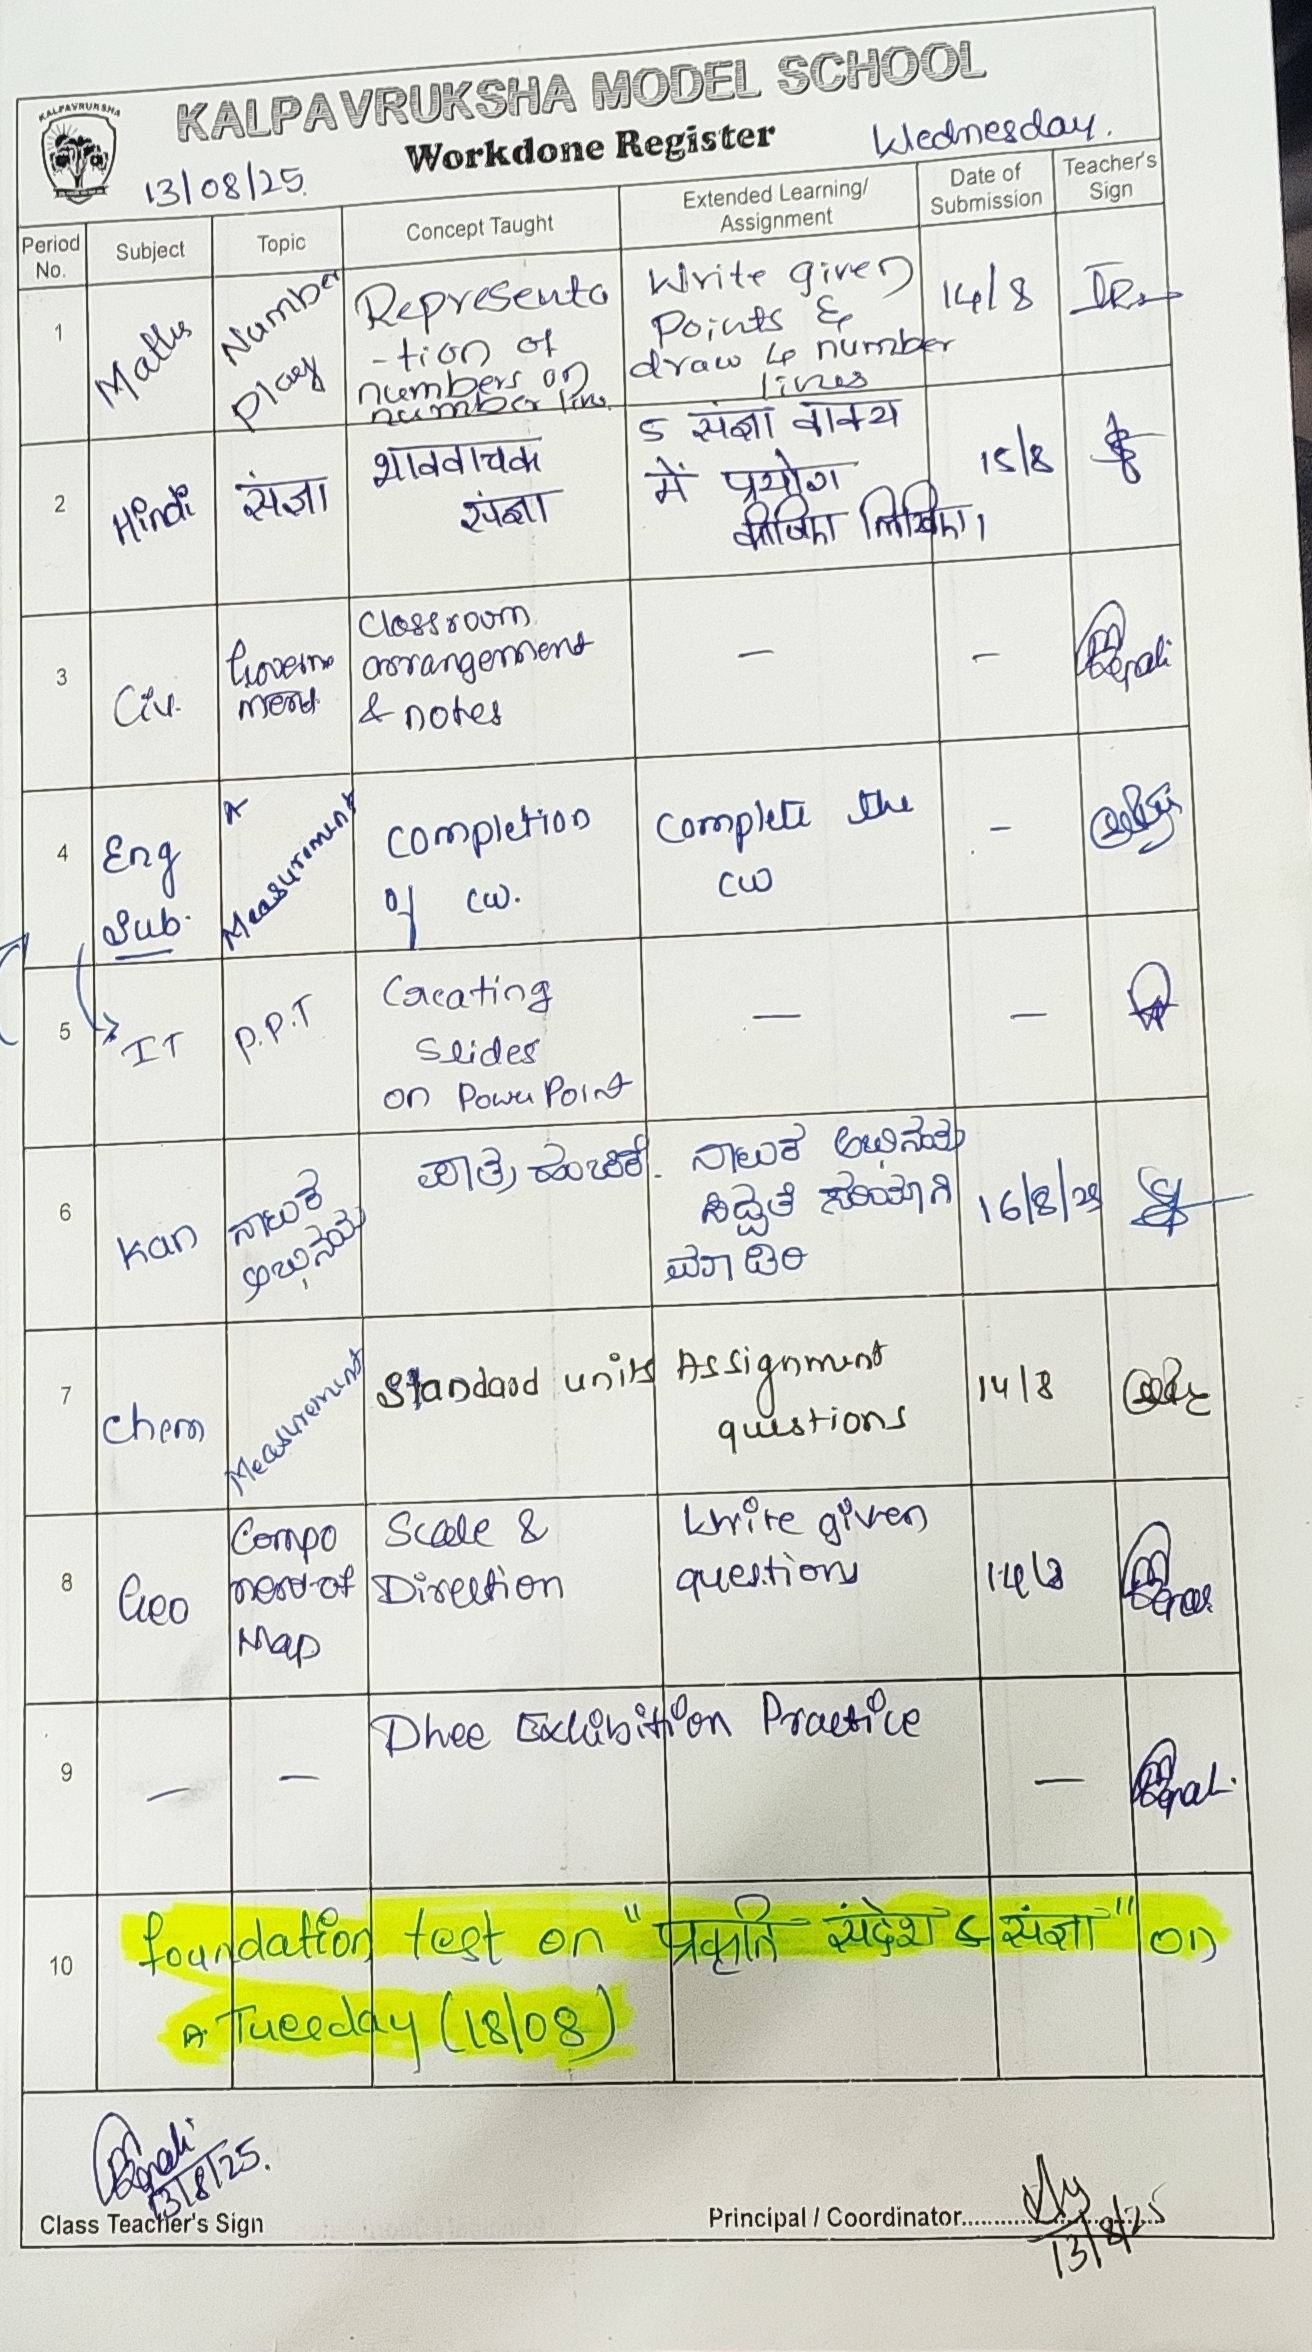 KALPAVRUKSHA
KALPAVRUKSHA MODEL SCHOOL
Workdone Register
13/08/25.
Wednesday.
Period No.
Subject
Topic
Concept Taught
Extended Learning/ Assignment
Date of Submission
Teacher's Sign
1
Maths
Number
Play
Representa
-tion of
numbers on
number line
Write given
Points &
draw 4 number
lines
14/8
2
Hindi
संज्ञा
भाववाचक
संज्ञा
5 संज्ञा वाक्य
में प्रयोग
लिखिए।
15/8
3
Civ.
Govern
ment
Classroom
arrangement
& notes
-
-
4
Eng
Sub.
Measurement
Completion
of cw.
Complete the
cw
-
5
IT
P.P.T
Creating
Slides
on PowerPoint
-
-
6
Kan
ನಾಟಕ
ಅಭಿನಯ
ಪಾತ್ರ ಹಂಚಿಕೆ.
ನಾಟಕ ಅಭಿನಯ
ಸಿದ್ಧತೆ ಸರಿಯಾಗಿ
ಮಾಡಿರಿ
16/8/25
7
Chem
Measurement
Standard units
Assignment
questions
14/8
8
Geo
Compo
nent of
Map
Scale &
Direction
Write given
questions
14/8
9
-
-
Dhee Exhibition Practice
-
10
foundation test on "प्रकृति संदेश & संज्ञा" on
Tuesday (18/08)
13/8/25.
Class Teacher's Sign
Principal / Coordinator....................
13/8/25